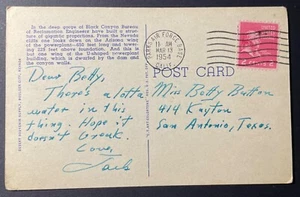 In the deep gorge of Black Canyon Bureau
of Reclamation Engineers have built a struc-
ture of gigantic proportions. From the Nevada
cliffs one looks down on the Arizona wing of
the powerplant—650 feet long and tower-
ing 229 feet above foundation. And this is
one wing of the U-shaped powerplant
building, which is dwarfed by the dam and
the canyon walls.
AIR FORCE
11 AM
MAR 13
1954
POST CARD
Dear Betty,
There's a lotta
water in this
thing. Hope it
doesn't break.
Love,
Jack
Miss Betty Button
414 Kayton
San Antonio, Texas.